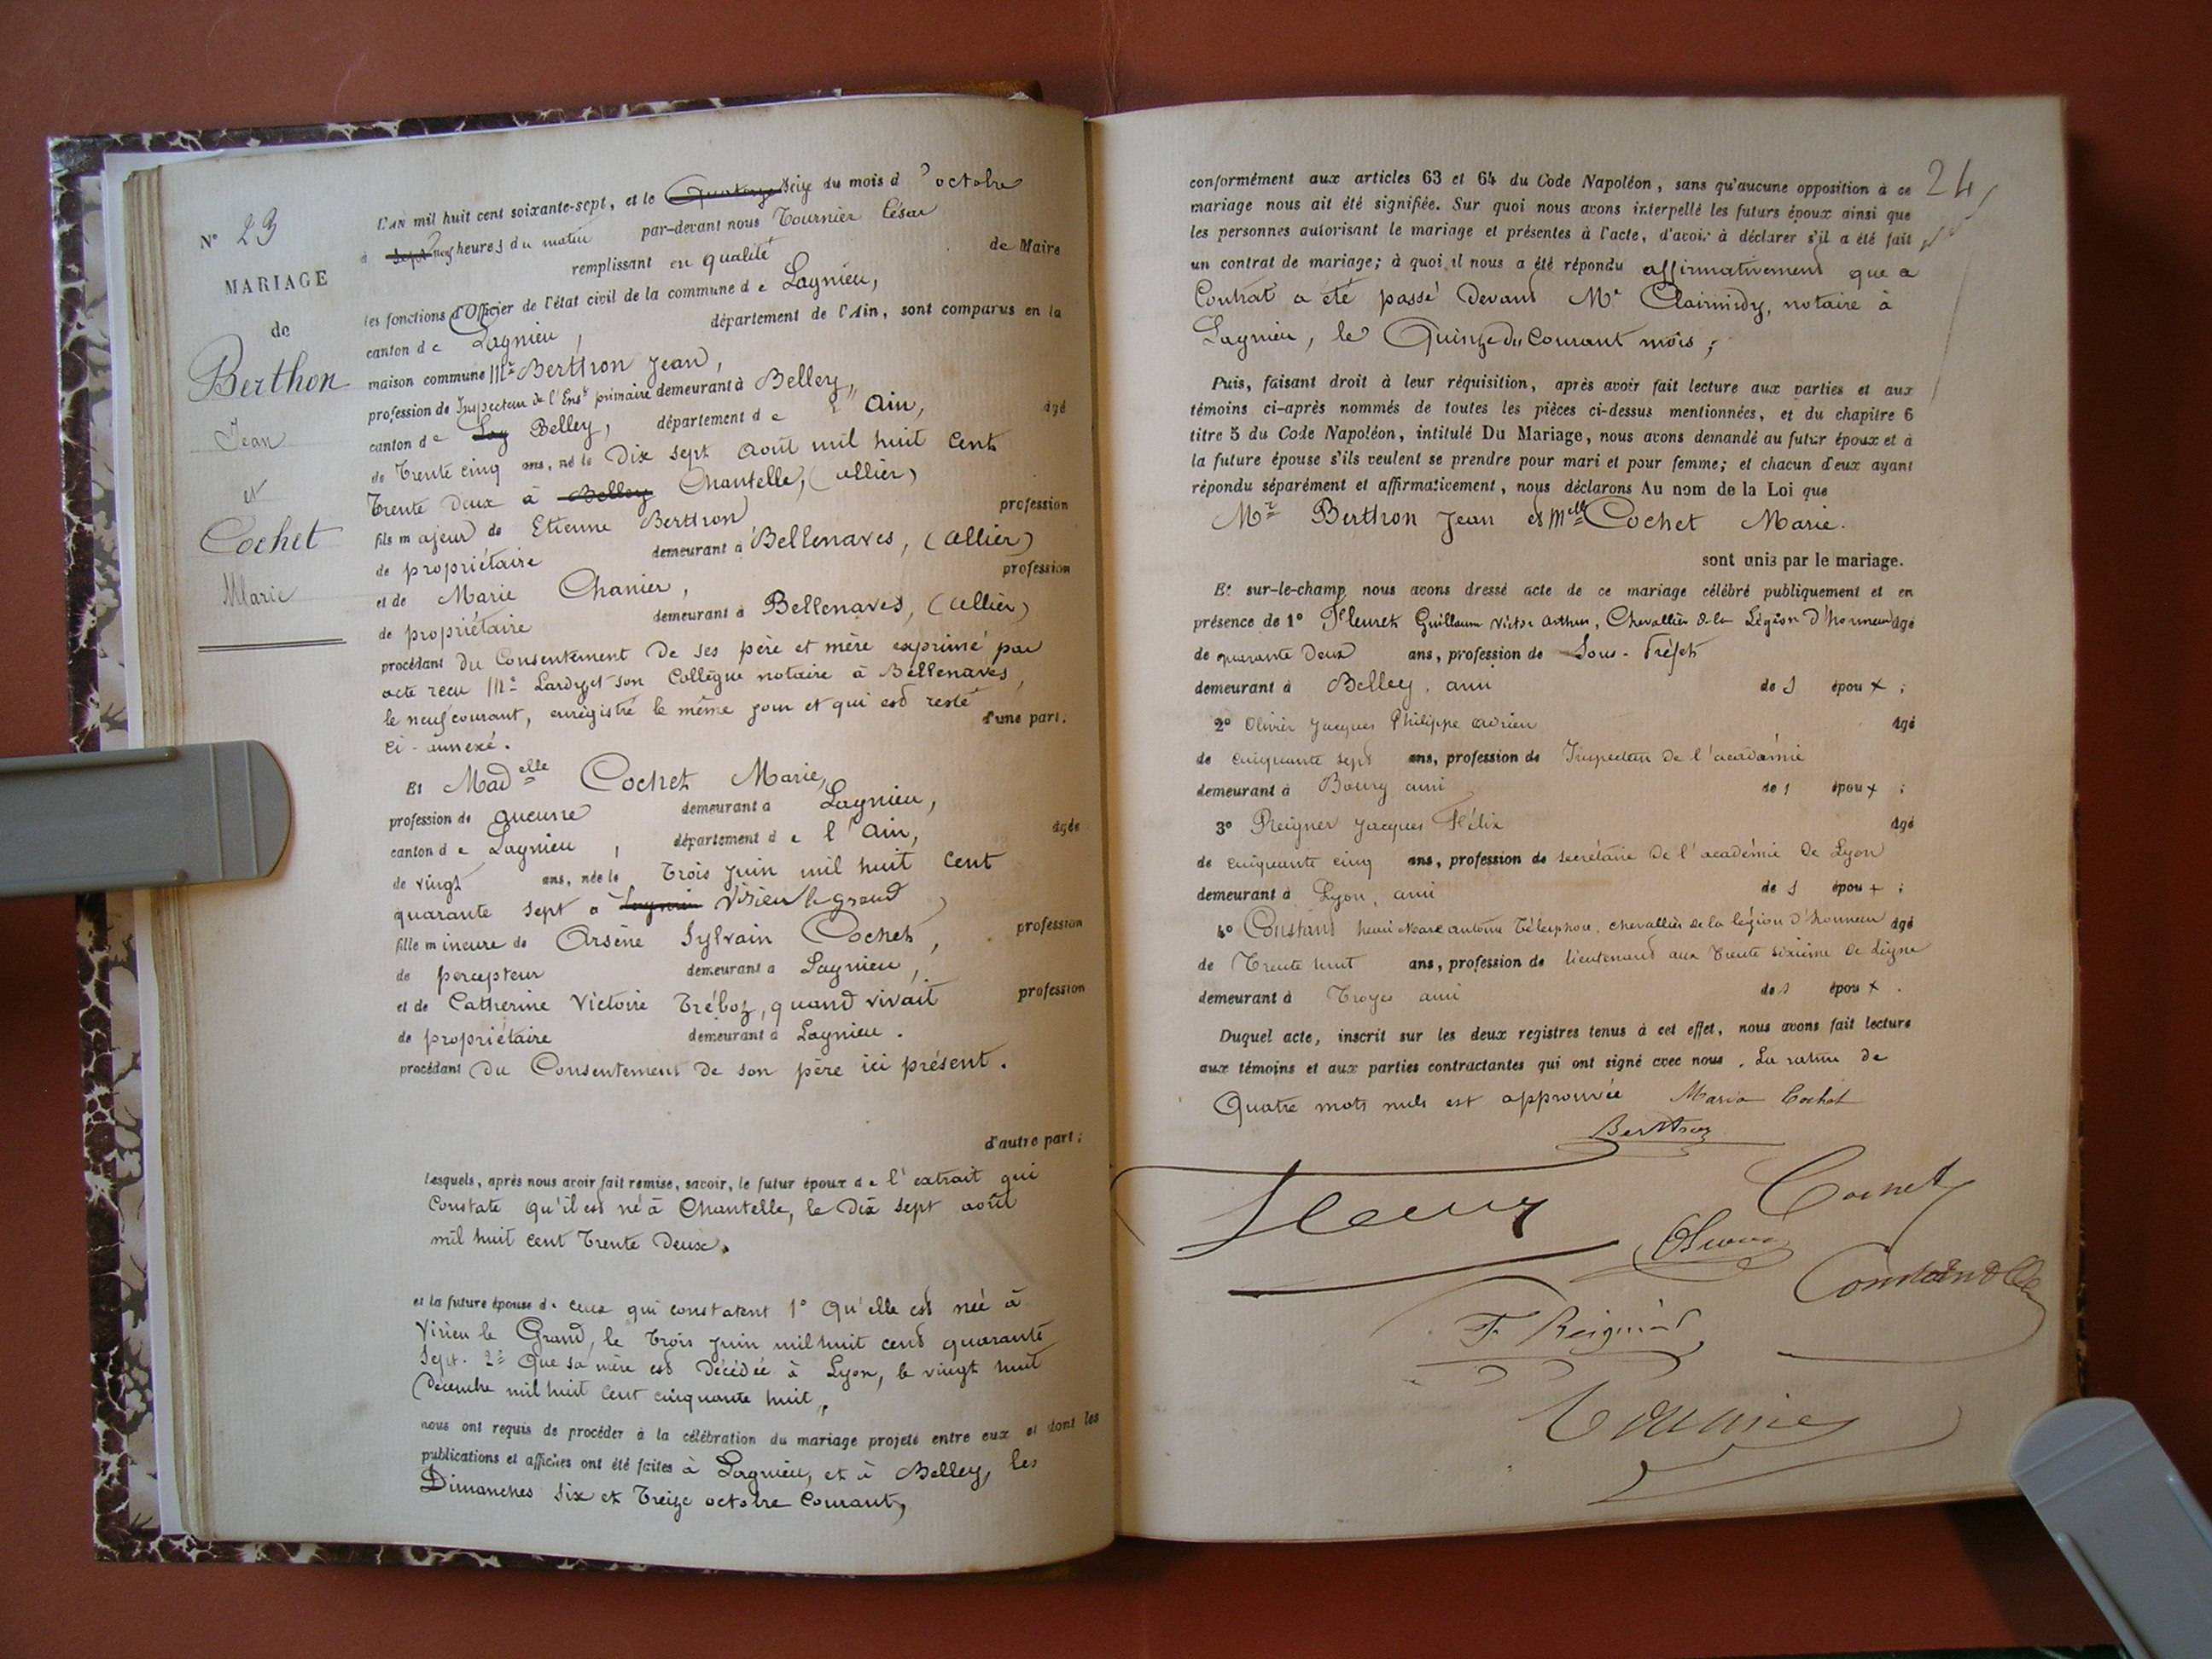 N° 23
MARIAGE
de
Berthon
Jean
et
Cochet
Marie
L'AN mil huit cent soixante-sept, et le Quatorze Seize du mois d'octobre
à sept neuf heures du matin par-devant nous Tournier César
remplissant en qualité de Maire
les fonctions d'Officier de l'état civil de la commune de Lagnieu,
canton de Lagnieu, département de l'Ain, sont comparus en la
maison commune Mr Berthon Jean,
profession de Inspecteur de l'Enst primaire demeurant à Belley,
canton de Lag Belley, département de l'Ain, âgé
de Trente cinq ans, né le Dix sept Août mil huit Cent
Trente Deux à Belley Chantelle, (allier)
fils majeur de Etienne Berthon profession
de propriétaire demeurant à Bellenaves, (allier)
et de Marie Chanier, profession
de propriétaire demeurant à Bellenaves, (allier)
procédant du Consentement de ses père et mère exprimé par
acte recu Me Lardyet son Collègue notaire à Bellenaves,
le neuf courant, enregistré le même jour et qui est resté
ci-annexé. d'une part;
Et Madelle Cochet Marie,
profession de aucune demeurant à Lagnieu,
canton de Lagnieu, département de l'Ain, âgée
de vingt ans, née le Trois Juin mil huit Cent
quarante sept à Lagnieu Virieu le grand,
fille mineure de Arsène Sylvain Cochet, profession
de percepteur demeurant à Lagnieu,
et de Catherine Victoire Tréboz, quand vivait profession
de propriétaire demeurant à Lagnieu.
procédant du Consentement de son père ici présent.
d'autre part;
lesquels, après nous avoir fait remise, savoir, le futur époux de l'extrait qui
Constate qu'il est né à Chantelle, le Dix sept août
mil huit cent Trente Deux.
et la future épouse de ceux qui constatent 1° Qu'elle est née à
Virieu le Grand, le Trois Juin mil huit cent quarante
Sept. 2° Que sa mère est Décédée à Lyon, le vingt huit
Décembre mil huit Cent cinquante huit,
nous ont requis de procéder à la célébration du mariage projeté entre eux et dont les
publications et affiches ont été faites à Lagnieu, et à Belley, les
Dimanches six et Treize octobre Courant,
24
conformément aux articles 63 et 64 du Code Napoléon, sans qu'aucune opposition à ce
mariage nous ait été signifiée. Sur quoi nous avons interpellé les futurs époux ainsi que
les personnes autorisant le mariage et présentes à l'acte, d'avoir à déclarer s'il a été fait
un contrat de mariage; à quoi il nous a été répondu affirmativement que ce
Contrat a été passé Devant Me notaire à
Lagnieu, le Quinze du Courant mois;
Puis, faisant droit à leur réquisition, après avoir fait lecture aux parties et aux
témoins ci-après nommés de toutes les pièces ci-dessus mentionnées, et du chapitre 6
titre 5 du Code Napoléon, intitulé Du Mariage, nous avons demandé au futur époux et à
la future épouse s'ils veulent se prendre pour mari et pour femme; et chacun d'eux ayant
répondu séparément et affirmativement, nous déclarons Au nom de la Loi que
Mr Berthon Jean et Melle Cochet Marie.
sont unis par le mariage.
Et sur-le-champ nous avons dressé acte de ce mariage célébré publiquement et en
présence de 1° Fleuret Guillaume Victor Arthur, Chevallier de la Légion d'honneur âgé
de quarante Deux ans, profession de Sous-Préfet
demeurant à Belley, ami de l'époux;
2° Olivier Jacques Philippe Adrien âgé
de cinquante sept ans, profession de Inspecteur de l'académie
demeurant à Bourg ami de l'époux;
3° Reignier Jacques Félix âgé
de cinquante cinq ans, profession de secrétaire de l'académie de Lyon
demeurant à Lyon, ami de l'époux;
4° Constand henri Marc antoine Télesphore, chevallier de la légion d'honneur âgé
de Trente huit ans, profession de lieutenant aux Trente sixième de Ligne
demeurant à Troyes ami de l'époux.
Duquel acte, inscrit sur les deux registres tenus à cet effet, nous avons fait lecture
aux témoins et aux parties contractantes qui ont signé avec nous. La rature de
Quatre mots nuls est approuvée Maria Cochet
Berthon
Fleury
Cochet
Olivier
F. Reignier
Tournier